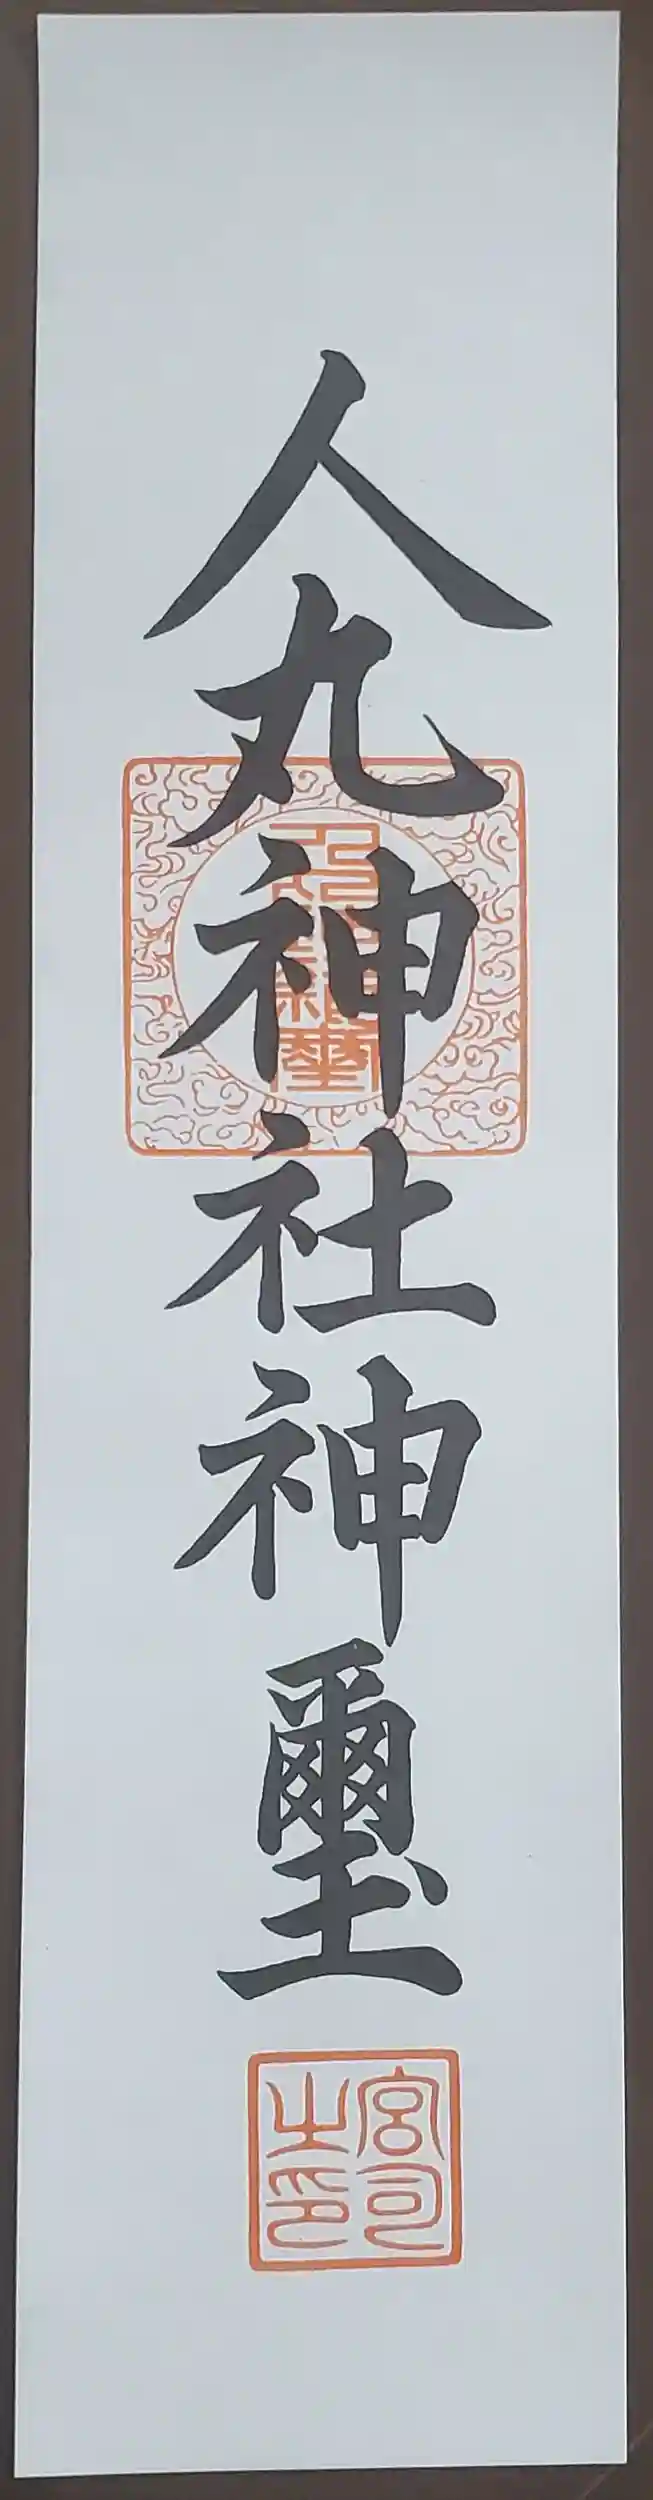 人丸神社神璽
宮司
之印